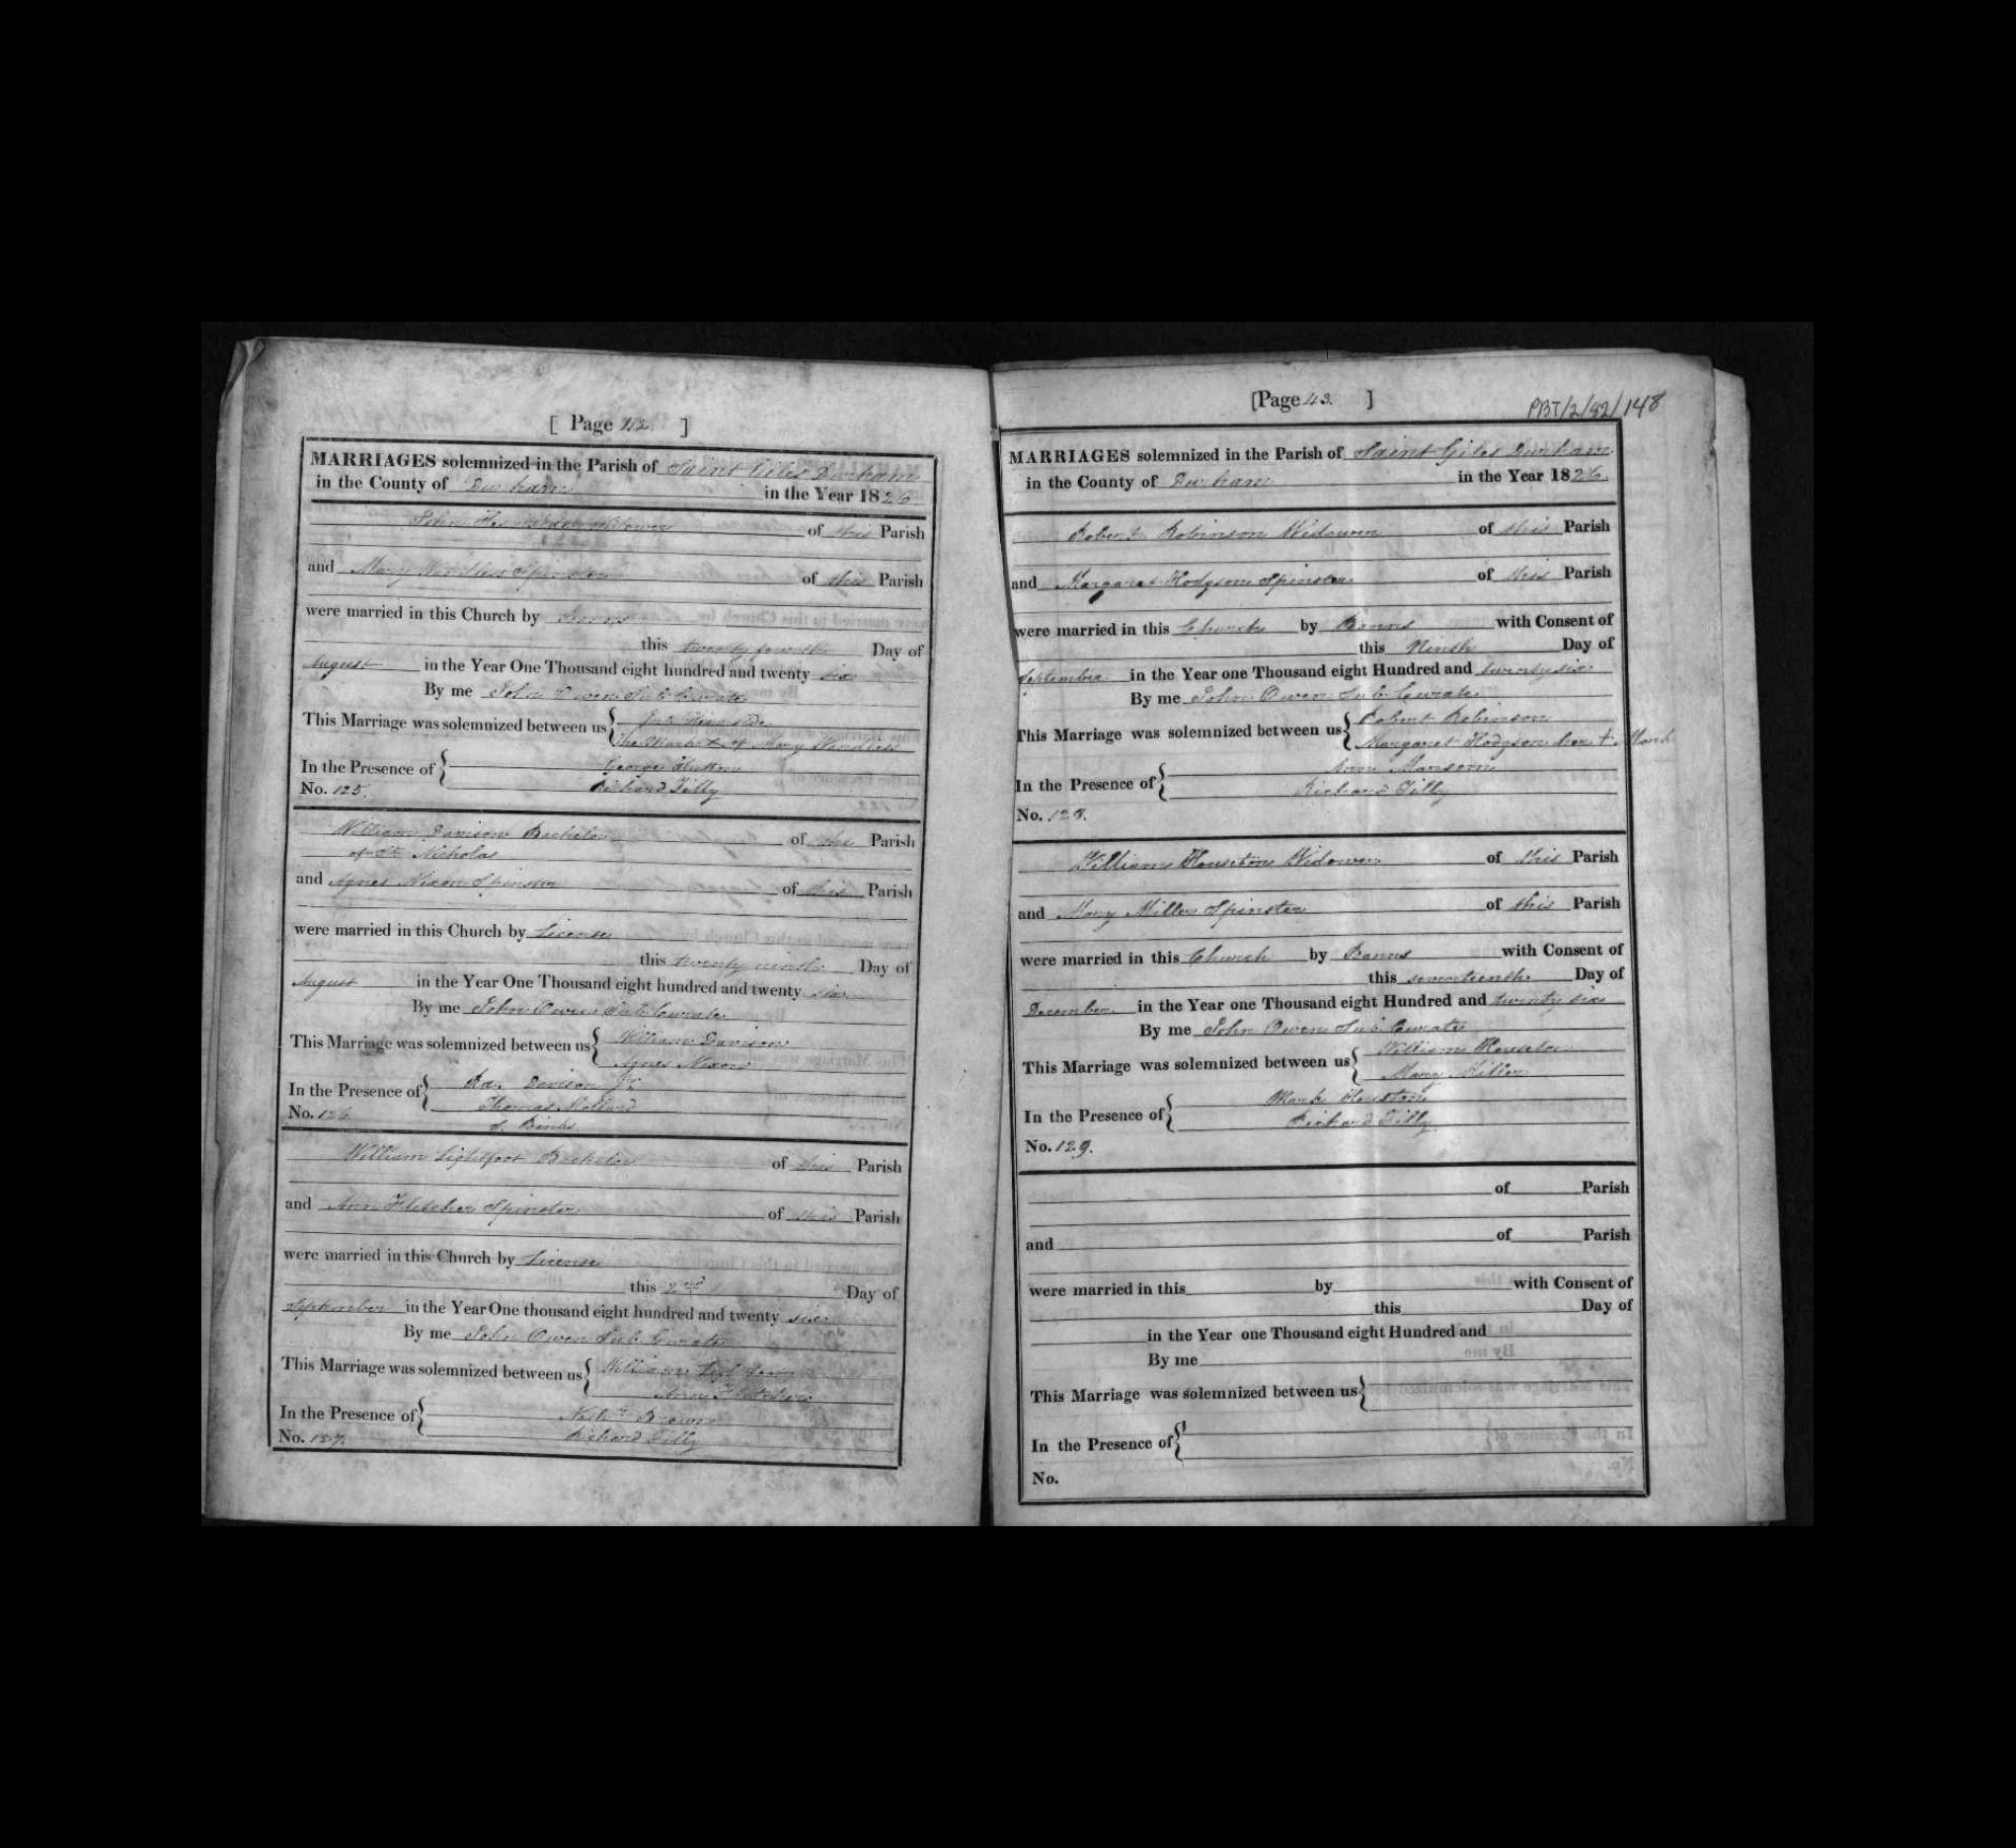 [ Page 42. ]
MARRIAGES solemnized in the Parish of Saint Giles Durham
in the County of Durham in the Year 1826
John Widower of this Parish
and Mary Spinster of this Parish
were married in this Church by Banns
this twenty fourth Day of
August in the Year One Thousand eight hundred and twenty six
By me John Owen Sub Curate
This Marriage was solemnized between us {
The Mark X of Mary
In the Presence of { George Hutton
Richard Tilly
No. 125.
William Davison Bachelor of this Parish
of St. Nicholas
and Agnes Nixon Spinster of this Parish
were married in this Church by License
this twenty ninth Day of
August in the Year One Thousand eight hundred and twenty six
By me John Owen Sub Curate
This Marriage was solemnized between us { William Davison
Agnes Nixon
In the Presence of { Davison
Thomas
No. 126.
William Lightfoot Bachelor of this Parish
and Ann Fletcher Spinster of this Parish
were married in this Church by License
this 2nd Day of
September in the Year One thousand eight hundred and twenty six
By me John Owen Sub Curate
This Marriage was solemnized between us { William Lightfoot
Ann Fletcher
In the Presence of { Brown
Richard Tilly
No. 127.
[Page 43. ]
PBT/2/82/148
MARRIAGES solemnized in the Parish of Saint Giles Durham
in the County of Durham in the Year 1826.
Robert Robinson Widower of this Parish
and Margaret Hodgson Spinster of this Parish
were married in this Church by Banns with Consent of
this Ninth Day of
September in the Year one Thousand eight Hundred and twenty six
By me John Owen Sub Curate
This Marriage was solemnized between us { Robert Robinson
Margaret Hodgson her + Mark
In the Presence of { Ann
Richard Tilly
No. 128.
William Houseton Widower of this Parish
and Mary Miller Spinster of this Parish
were married in this Church by Banns with Consent of
this seventeenth Day of
December in the Year one Thousand eight Hundred and twenty six
By me John Owen Sub Curate
This Marriage was solemnized between us { William Houseton
Mary Miller
In the Presence of { Mark
Richard Tilly
No. 129.
of Parish
and of Parish
were married in this by with Consent of
this Day of
in the Year one Thousand eight Hundred and
By me
This Marriage was solemnized between us {
In the Presence of {
No.